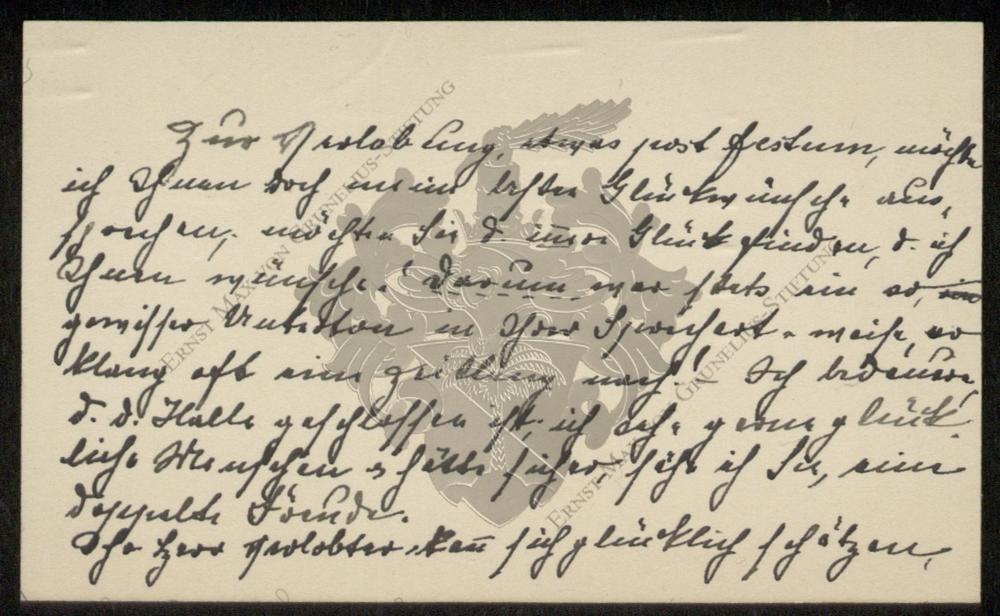 Zur Verlobung, etwas post festum, möchte
ich Ihnen doch meine besten Glückwünsche aus-
sprechen, möchten Sie d. innere Glück finden, d. ich
Ihnen wünsche! Darum war stets ein so, ein
gewisser Unterton in Ihrer Sprechart u. weise, so
klang oft eine nach! - Ich bedaure,
d. d. Halle geschlossen ist, ich sehe gerne glück-
liche Menschen & hätte sicher, sähe ich Sie, eine
doppelte Freude.
Ihr Herr Verlobter kann sich glücklich schätzen,
ERNST MAX VON GRUNELIUS-STIFTUNG
ERNST MAX VON GRUNELIUS-STIFTUNG